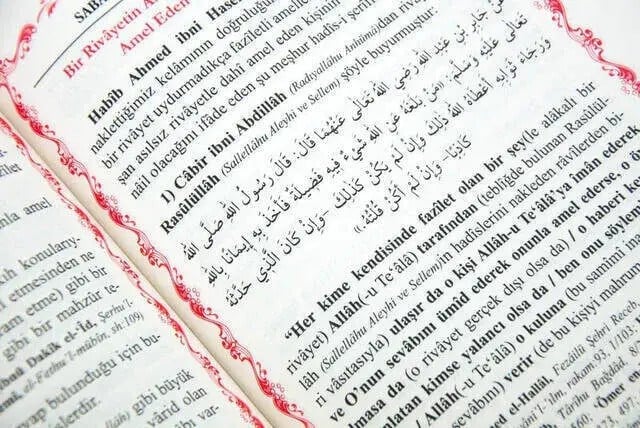 SABA
Bir Rivâyetin A
Amel Eden
Habîb Ahmed ibni Hase
naklettiğimiz kelâmının doğruluğu
bir rivâyet uydurmadıkça fazîletli amelle
şan asılsız rivâyetle dahi amel eden kişinin
nâil olacağını ifade eden şu meşhur hadîs-i şerîf
1) Câbir ibni Abdillâh (Radıyallâhu Anhümâ)dan
Rasûlüllâh (Sallellâhu Aleyhi ve Sellem) şöyle buyurmuştur:
عَنْ جَابِرِ بْنِ عَبْدِ اللهِ رَضِيَ اللهُ تَعَالَى عَنْهُمَا قَالَ: قَالَ رَسُولُ اللهِ صَلَّى اللهُ
تَعَالَى عَلَيْهِ وَسَلَّمَ: «مَنْ بَلَغَهُ عَنِ اللهِ شَيْءٌ فِيهِ فَضِيلَةٌ فَأَخَذَ بِهِ إِيمَانًا بِاللهِ
وَرَجَاءَ ثَوَابِهِ أَعْطَاهُ اللهُ ذَلِكَ وَإِنْ لَمْ يَكُنْ كَذَلِكَ –وَإِنْ كَانَ الَّذِي حَدَّثَهُ
كَاذِبًا– وَإِنْ لَمْ أَكُنْ قُلْتُهُ»
"Her kime kendisinde fazîlet olan bir şey(le alâkalı bir
rivâyet) Allâh(-u Te'âlâ) tarafından (tebliğde bulunan Rasûlül-
lâh (Sallellâhu Aleyhi ve Sellem)in hadîslerini nakleden râvîlerden bi-
ri vâsıtasıyla) ulaşır da o kişi Allâh-u Te'âlâ'ya îmân ederek
ve O'nun sevâbını ümîd ederek onunla amel ederse, o
lmasa da (o rivâyet gerçek dışı olsa da) / o haberi ke
nlatan kimse yalancı olsa da / ben onu söyle
/ Allâh(-u Te'âlâ) o kuluna (bu samimi in
sevâbını) verir (de bu kişiyi mahrum
med el-Halâl, Fezâilü Şehri Receb
rakam:93, 1/102
Târîhu Bağdâd
Ömer
nla amel
ah konularıy-
etmesinden ne
am etme) gibi bir
gibi bir mahzûr te-
Dakîk el-Îd, Şerhu'l-
el-Fethu'l-mübîn, sh:109)
vap bulunduğu için bu-
gibi büyük
vap olarak vârid olan